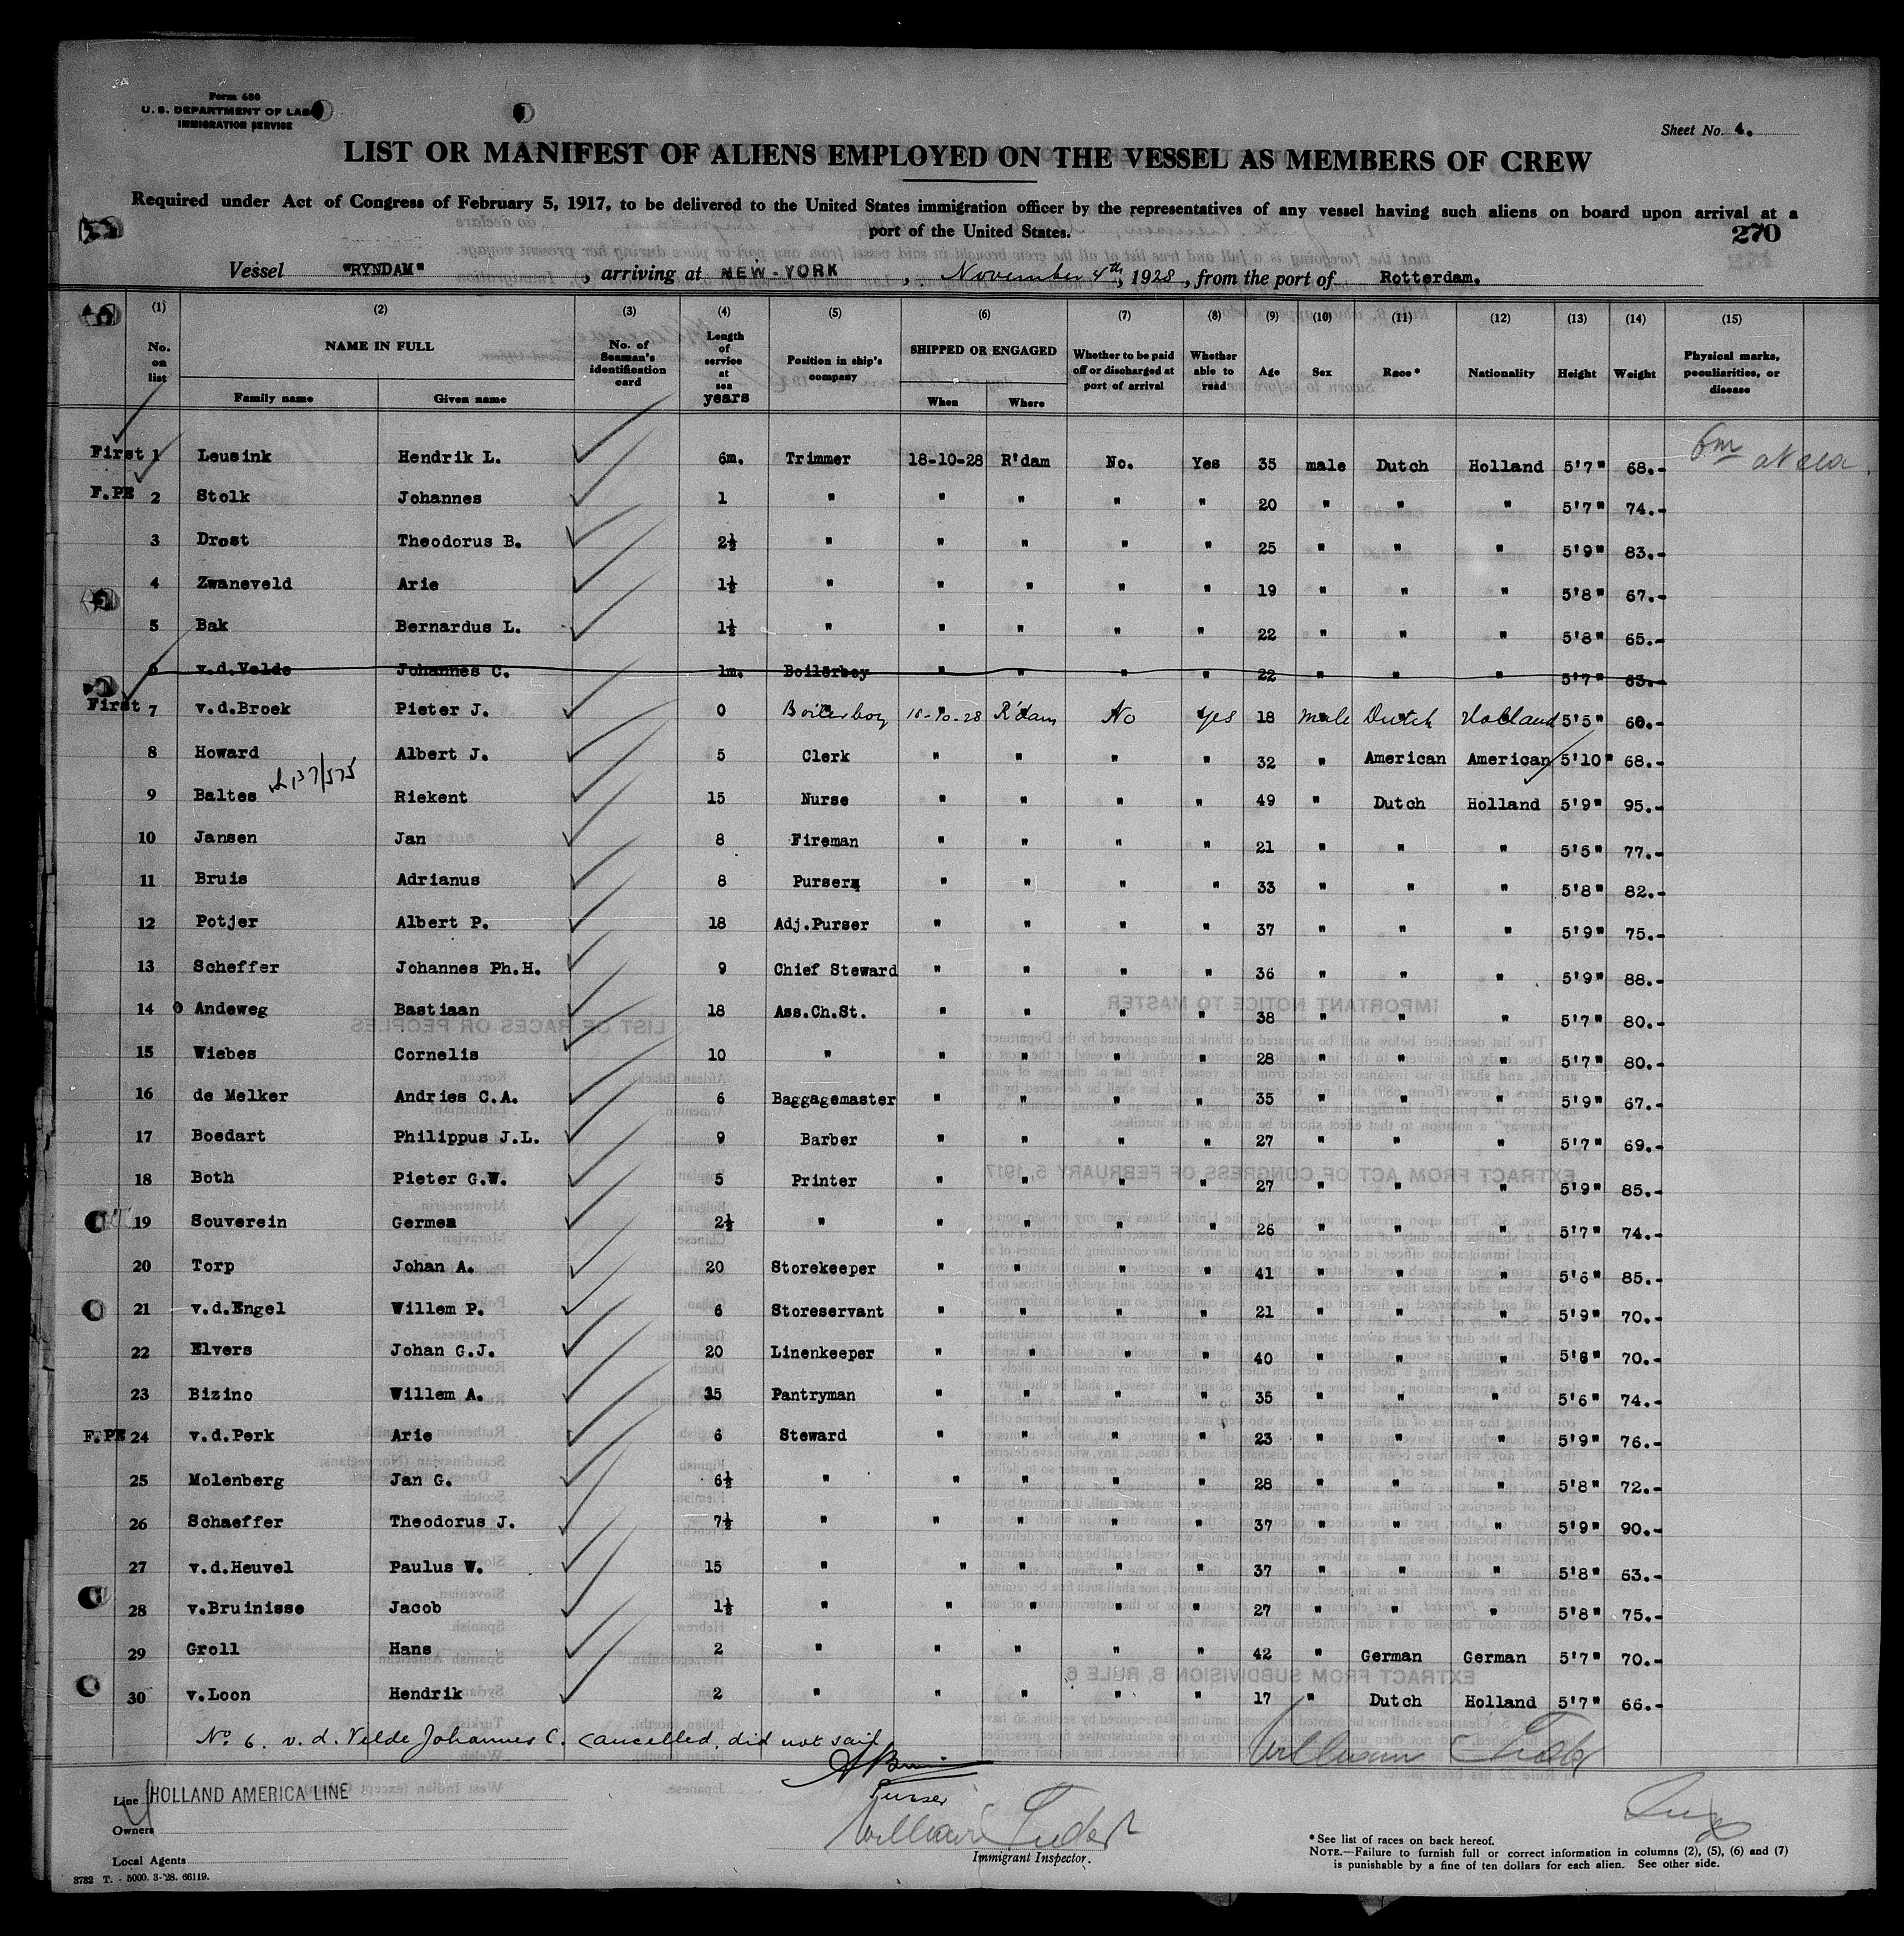 Form 680
U. S. DEPARTMENT OF LABOR
IMMIGRATION SERVICE
Sheet No. 4.
LIST OR MANIFEST OF ALIENS EMPLOYED ON THE VESSEL AS MEMBERS OF CREW
Required under Act of Congress of February 5, 1917, to be delivered to the United States immigration officer by the representatives of any vessel having such aliens on board upon arrival at a
port of the United States.
270
Vessel "RYNDAM", arriving at NEW-YORK, November 4th, 1928, from the port of Rotterdam.
(1) (2) (3) (4) (5) (6) (7) (8) (9) (10) (11) (12) (13) (14) (15)
No. on list NAME IN FULL Family name Given name No. of Seaman's identification card Length of service at sea years Position in ship's company SHIPPED OR ENGAGED When Where Whether to be paid off or discharged at port of arrival Whether able to read Age Sex Race* Nationality Height Weight Physical marks, peculiarities, or disease
First 1 Leusink Hendrik L. 6m. Trimmer 18-10-28 R'dam No. Yes 35 male Dutch Holland 5'7" 68.-
F.PE 2 Stolk Johannes 1 " " " " " 20 " " " 5'7" 74.-
3 Drost Theodorus B. 2½ " " " " " 25 " " " 5'9" 83.-
4 Zwaneveld Arie 1½ " " " " " 19 " " " 5'8" 67.-
5 Bak Bernardus L. 1½ " " " " " 22 " " " 5'8" 65.-
6 v.d.Velde Johannes C. 1m. Boilerboy " " " " 22 " " " 5'7" 63.-
First 7 v.d.Broek Pieter J. 0 Boilerboy 18-10-28 R'dam No Yes 18 male Dutch Holland 5'5" 60.-
8 Howard Albert J. 5 Clerk " " " " 32 " American American 5'10" 68.-
9 Baltes Riekent 15 Nurse " " " " 49 " Dutch Holland 5'9" 95.-
10 Jansen Jan 8 Fireman " " " " 21 " " " 5'5" 77.-
11 Bruis Adrianus 8 Purser " " " " 33 " " " 5'8" 82.-
12 Potjer Albert P. 18 Adj.Purser " " " " 37 " " " 5'9" 75.-
13 Scheffer Johannes Ph.H. 9 Chief Steward " " " " 36 " " " 5'9" 88.-
14 Andeweg Bastiaan 18 Ass.Ch.St. " " " " 38 " " " 5'7" 80.-
15 Wiebes Cornelis 10 " " " " " 28 " " " 5'7" 80.-
16 de Melker Andries C.A. 6 Baggagemaster " " " " 35 " " " 5'9" 67.-
17 Boedart Philippus J.L. 9 Barber " " " " 27 " " " 5'7" 69.-
18 Both Pieter G.W. 5 Printer " " " " 27 " " " 5'9" 85.-
19 Souverein Germen 2½ " " " " " 26 " " " 5'7" 74.-
20 Torp Johan A. 20 Storekeeper " " " " 41 " " " 5'6" 85.-
21 v.d.Engel Willem P. 6 Storeservant " " " " 21 " " " 5'9" 70.-
22 Elvers Johan G.J. 20 Linenkeeper " " " " 40 " " " 5'6" 70.-
23 Bizino Willem A. 15 Pantryman " " " " 35 " " " 5'6" 74.-
F.PE 24 v.d.Perk Arie 6 Steward " " " " 23 " " " 5'9" 76.-
25 Molenberg Jan G. 6½ " " " " " 28 " " " 5'8" 72.-
26 Schaeffer Theodorus J. 7½ " " " " " 37 " " " 5'9" 90.-
27 v.d.Heuvel Paulus W. 15 " " " " " 37 " " " 5'8" 63.-
28 v.Bruinisse Jacob 1½ " " " " " 27 " " " 5'8" 75.-
29 Groll Hans 2 " " " " " 42 " German German 5'7" 70.-
30 v.Loon Hendrik 2 " " " " " 17 " Dutch Holland 5'7" 66.-
No. 6. v.d. Velde Johannes C. cancelled, did not sail
Purser
Line HOLLAND AMERICA LINE
Owners
Local Agents
Immigrant Inspector.
*See list of races on back hereof.
NOTE.—Failure to furnish full or correct information in columns (2), (5), (6) and (7)
is punishable by a fine of ten dollars for each alien. See other side.
3782 T. - 5000. 3-'28. 66119.